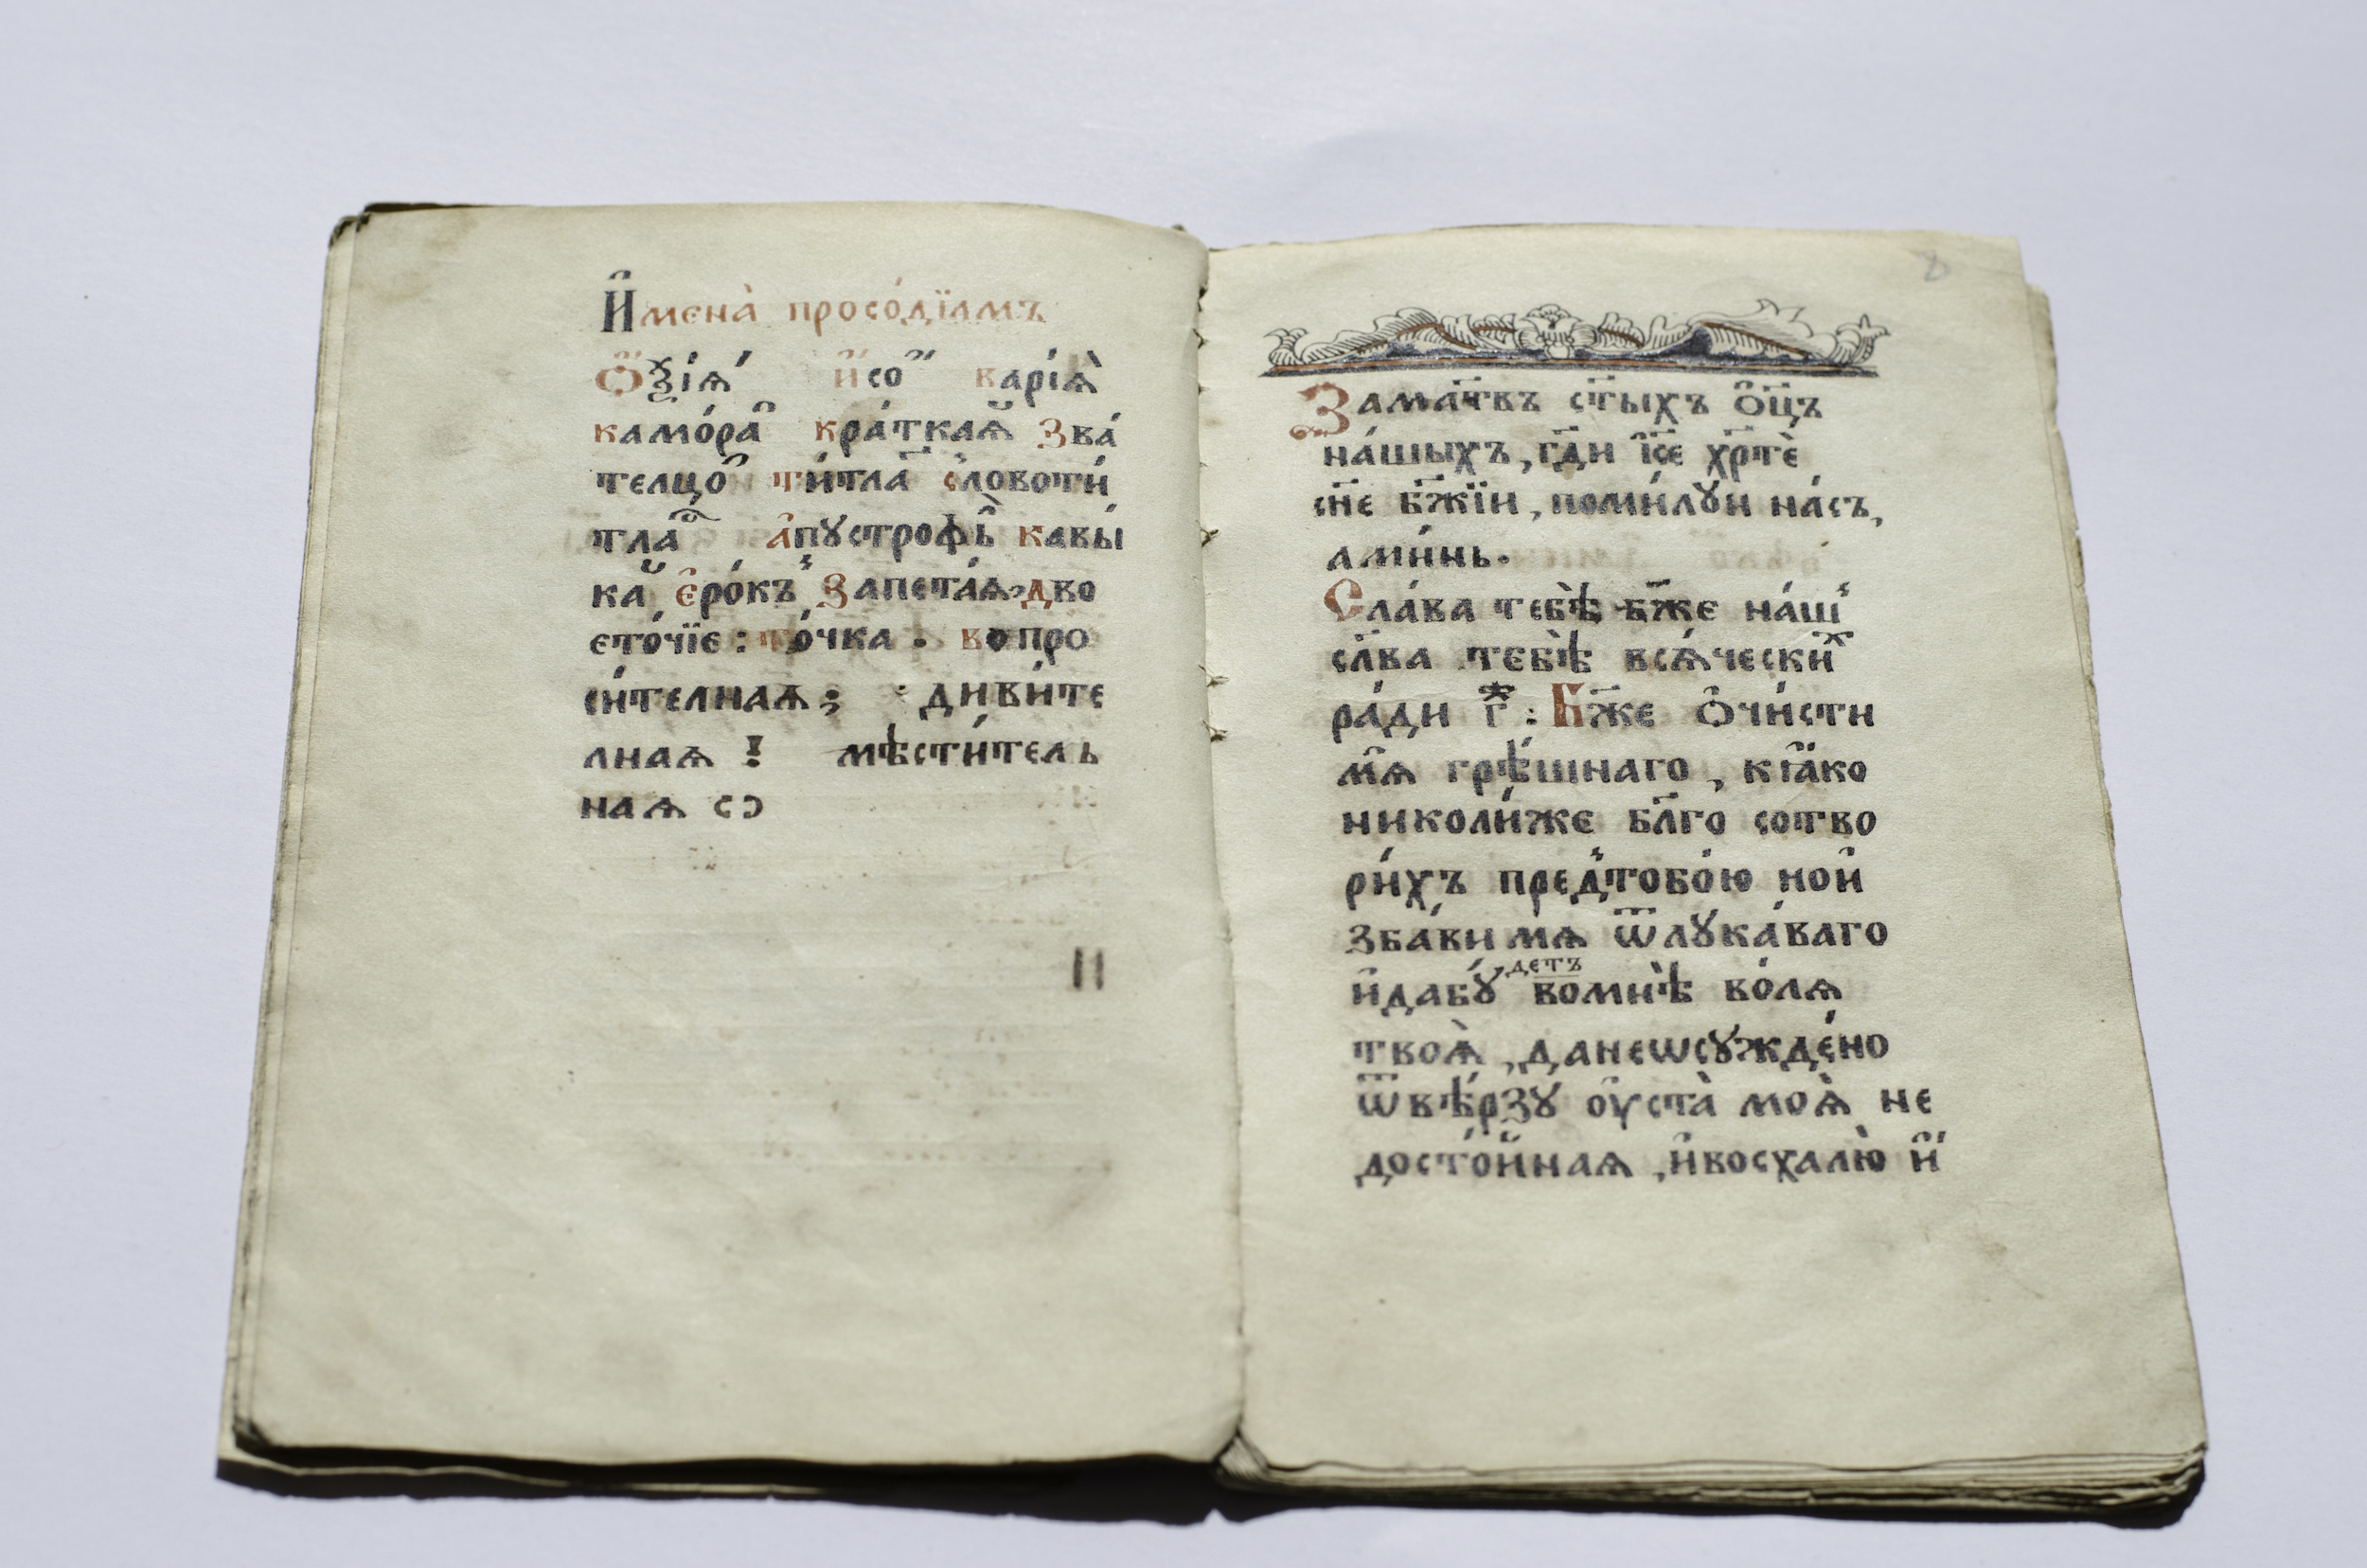 И҆мена̀ просо́дїамъ
Ѻ҆ѯі́ѧ и҆со варі́ѧ
камо́ра кра́ткаѧ зва́
телцо ти́тла словоти́
тла а҆пꙋстрофь кавы́
ка є҆ро́къ запета́ѧ, дво
єто́чїе : то́чка . вопро
си́телнаѧ ; диви́те
лнаѧ ! мѣсти́тель
наѧ ͼ ͽ
8
Замл҃твъ ст҃ыхъ ѻ҆ц҃ъ
на́шыхъ, гд҃и і҆с҃е хр҃тѐ
сн҃е бж҃їи, поми́лꙋи на́съ,
ами́нь.
Сла́ва тебѣ̀ бж҃е на́ш
сл҃ва тебѣ̀ всѧ́чески
ра́ди г҃ : Бж҃е ѻ҆чи́сти
мѧ̑ грѣ́шнаго, кꙗ҆́ко
николи́же бл҃го сотво
ри́хъ пред̾тобо́ю нои҆
зба́ви мѧ ѿлꙋка́ваго
и҆дабꙋ́детъ вомнѣ̀ во́лѧ
твоѧ̀, данеѡсꙋжде́но
ѿвѣ́рзꙋ оу҆ста̀ моѧ̀ не
досто́йнаѧ, и҆восхалю̀ и҆́